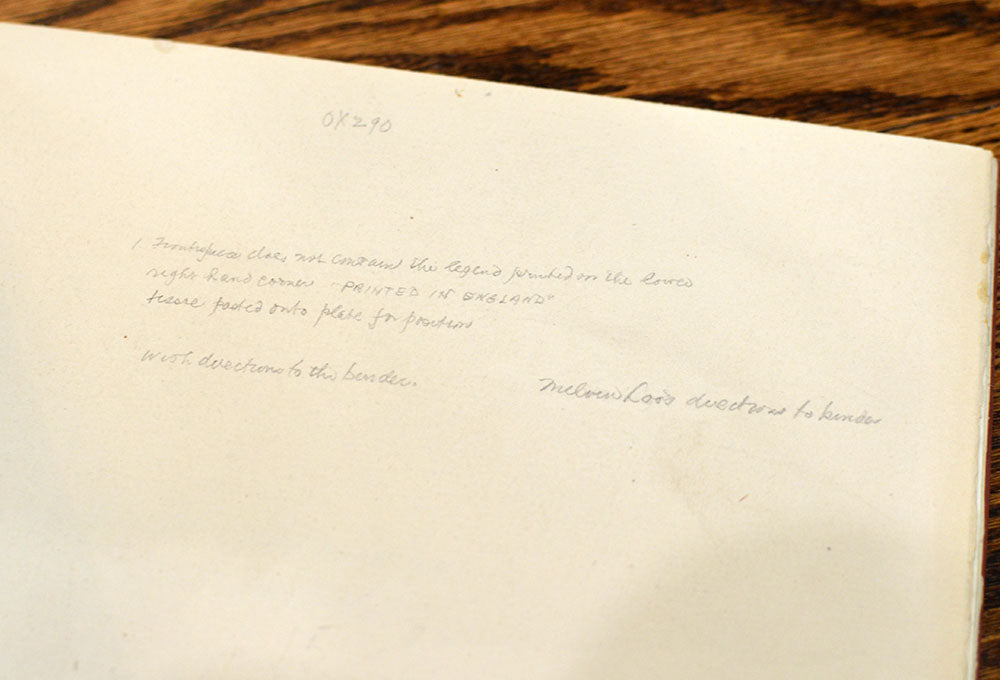 OX290
1 Frontispiece does not contain the legend printed on the lower
right hand corner "PRINTED IN ENGLAND"
tissue pasted onto plate for position
with directions to the binder.
Melvin Loos directions to binder